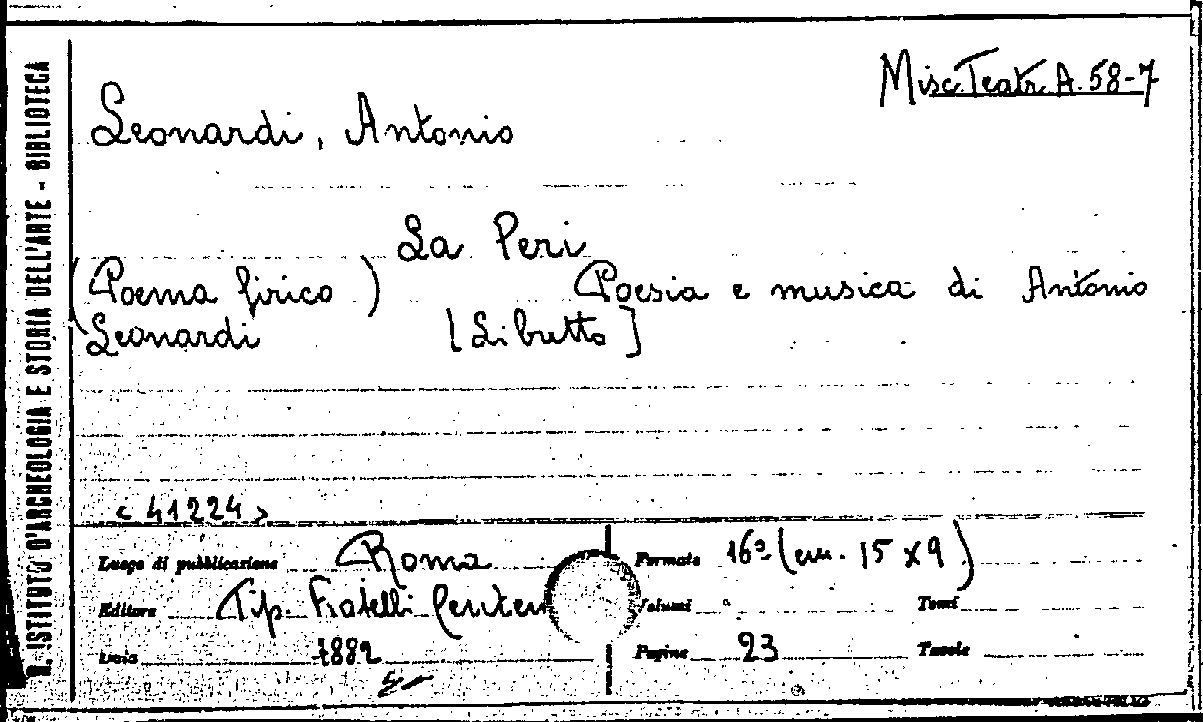 R. ISTITUTO D'ARCHEOLOGIA E STORIA DELL'ARTE - BIBLIOTECA
Misc. Teatr. A. 58-7
Leonardi, Antonio
La Peri
(Poema lirico) Poesia e musica di Antonio
Leonardi [Libretto]
< 41224 >
Luogo di pubblicazione Roma Formato 16º (cm. 15 x 9)
Editore Tip. Fratelli Volumi Tomi
Data 1882 Pagine 23 Tavole